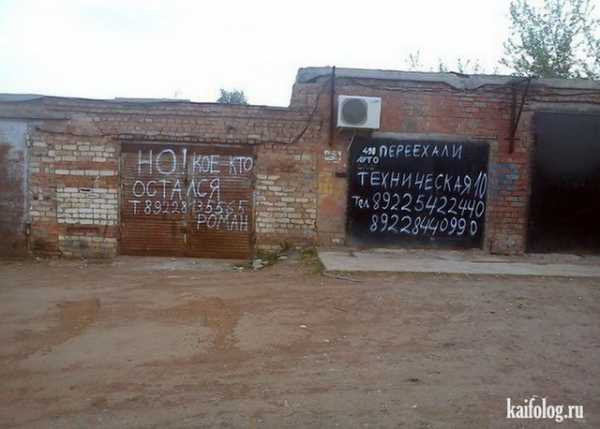 НО! КОЕ КТО
ОСТАЛСЯ
Т 89228135565
РОМАН
АВТО
ПЕРЕЕХАЛИ
ТЕХНИЧЕСКАЯ 10
Тел 89225422440
89228440990
kaifolog.ru